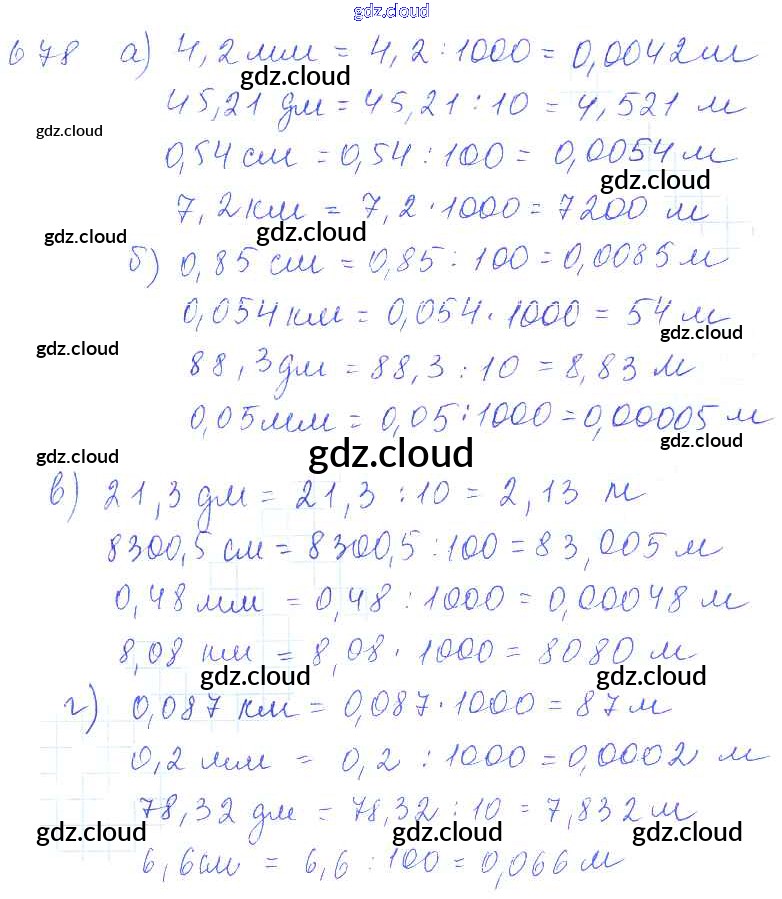 gdz.cloud
678 а) 4,2 мм = 4,2 : 1000 = 0,0042 м
gdz.cloud
45,21 дм = 45,21 : 10 = 4,521 м
gdz.cloud
0,54 см = 0,54 : 100 = 0,0054 м
gdz.cloud
7,2 км = 7,2 · 1000 = 7200 м
gdz.cloud gdz.cloud
б) 0,85 см = 0,85 : 100 = 0,0085 м
0,054 км = 0,054 · 1000 = 54 м
gdz.cloud
gdz.cloud
88,3 дм = 88,3 : 10 = 8,83 м
0,05 мм = 0,05 : 1000 = 0,00005 м
gdz.cloud
gdz.cloud gdz.cloud
в) 21,3 дм = 21,3 : 10 = 2,13 м
8300,5 см = 8300,5 : 100 = 83,005 м
0,48 мм = 0,48 : 1000 = 0,00048 м
8,08 км = 8,08 · 1000 = 8080 м
gdz.cloud gdz.cloud
г) 0,087 км = 0,087 · 1000 = 87 м
0,2 мм = 0,2 : 1000 = 0,0002 м
78,32 дм = 78,32 : 10 = 7,832 м
gdz.cloud gdz.cloud gdz.cloud
6,6 см = 6,6 : 100 = 0,066 м